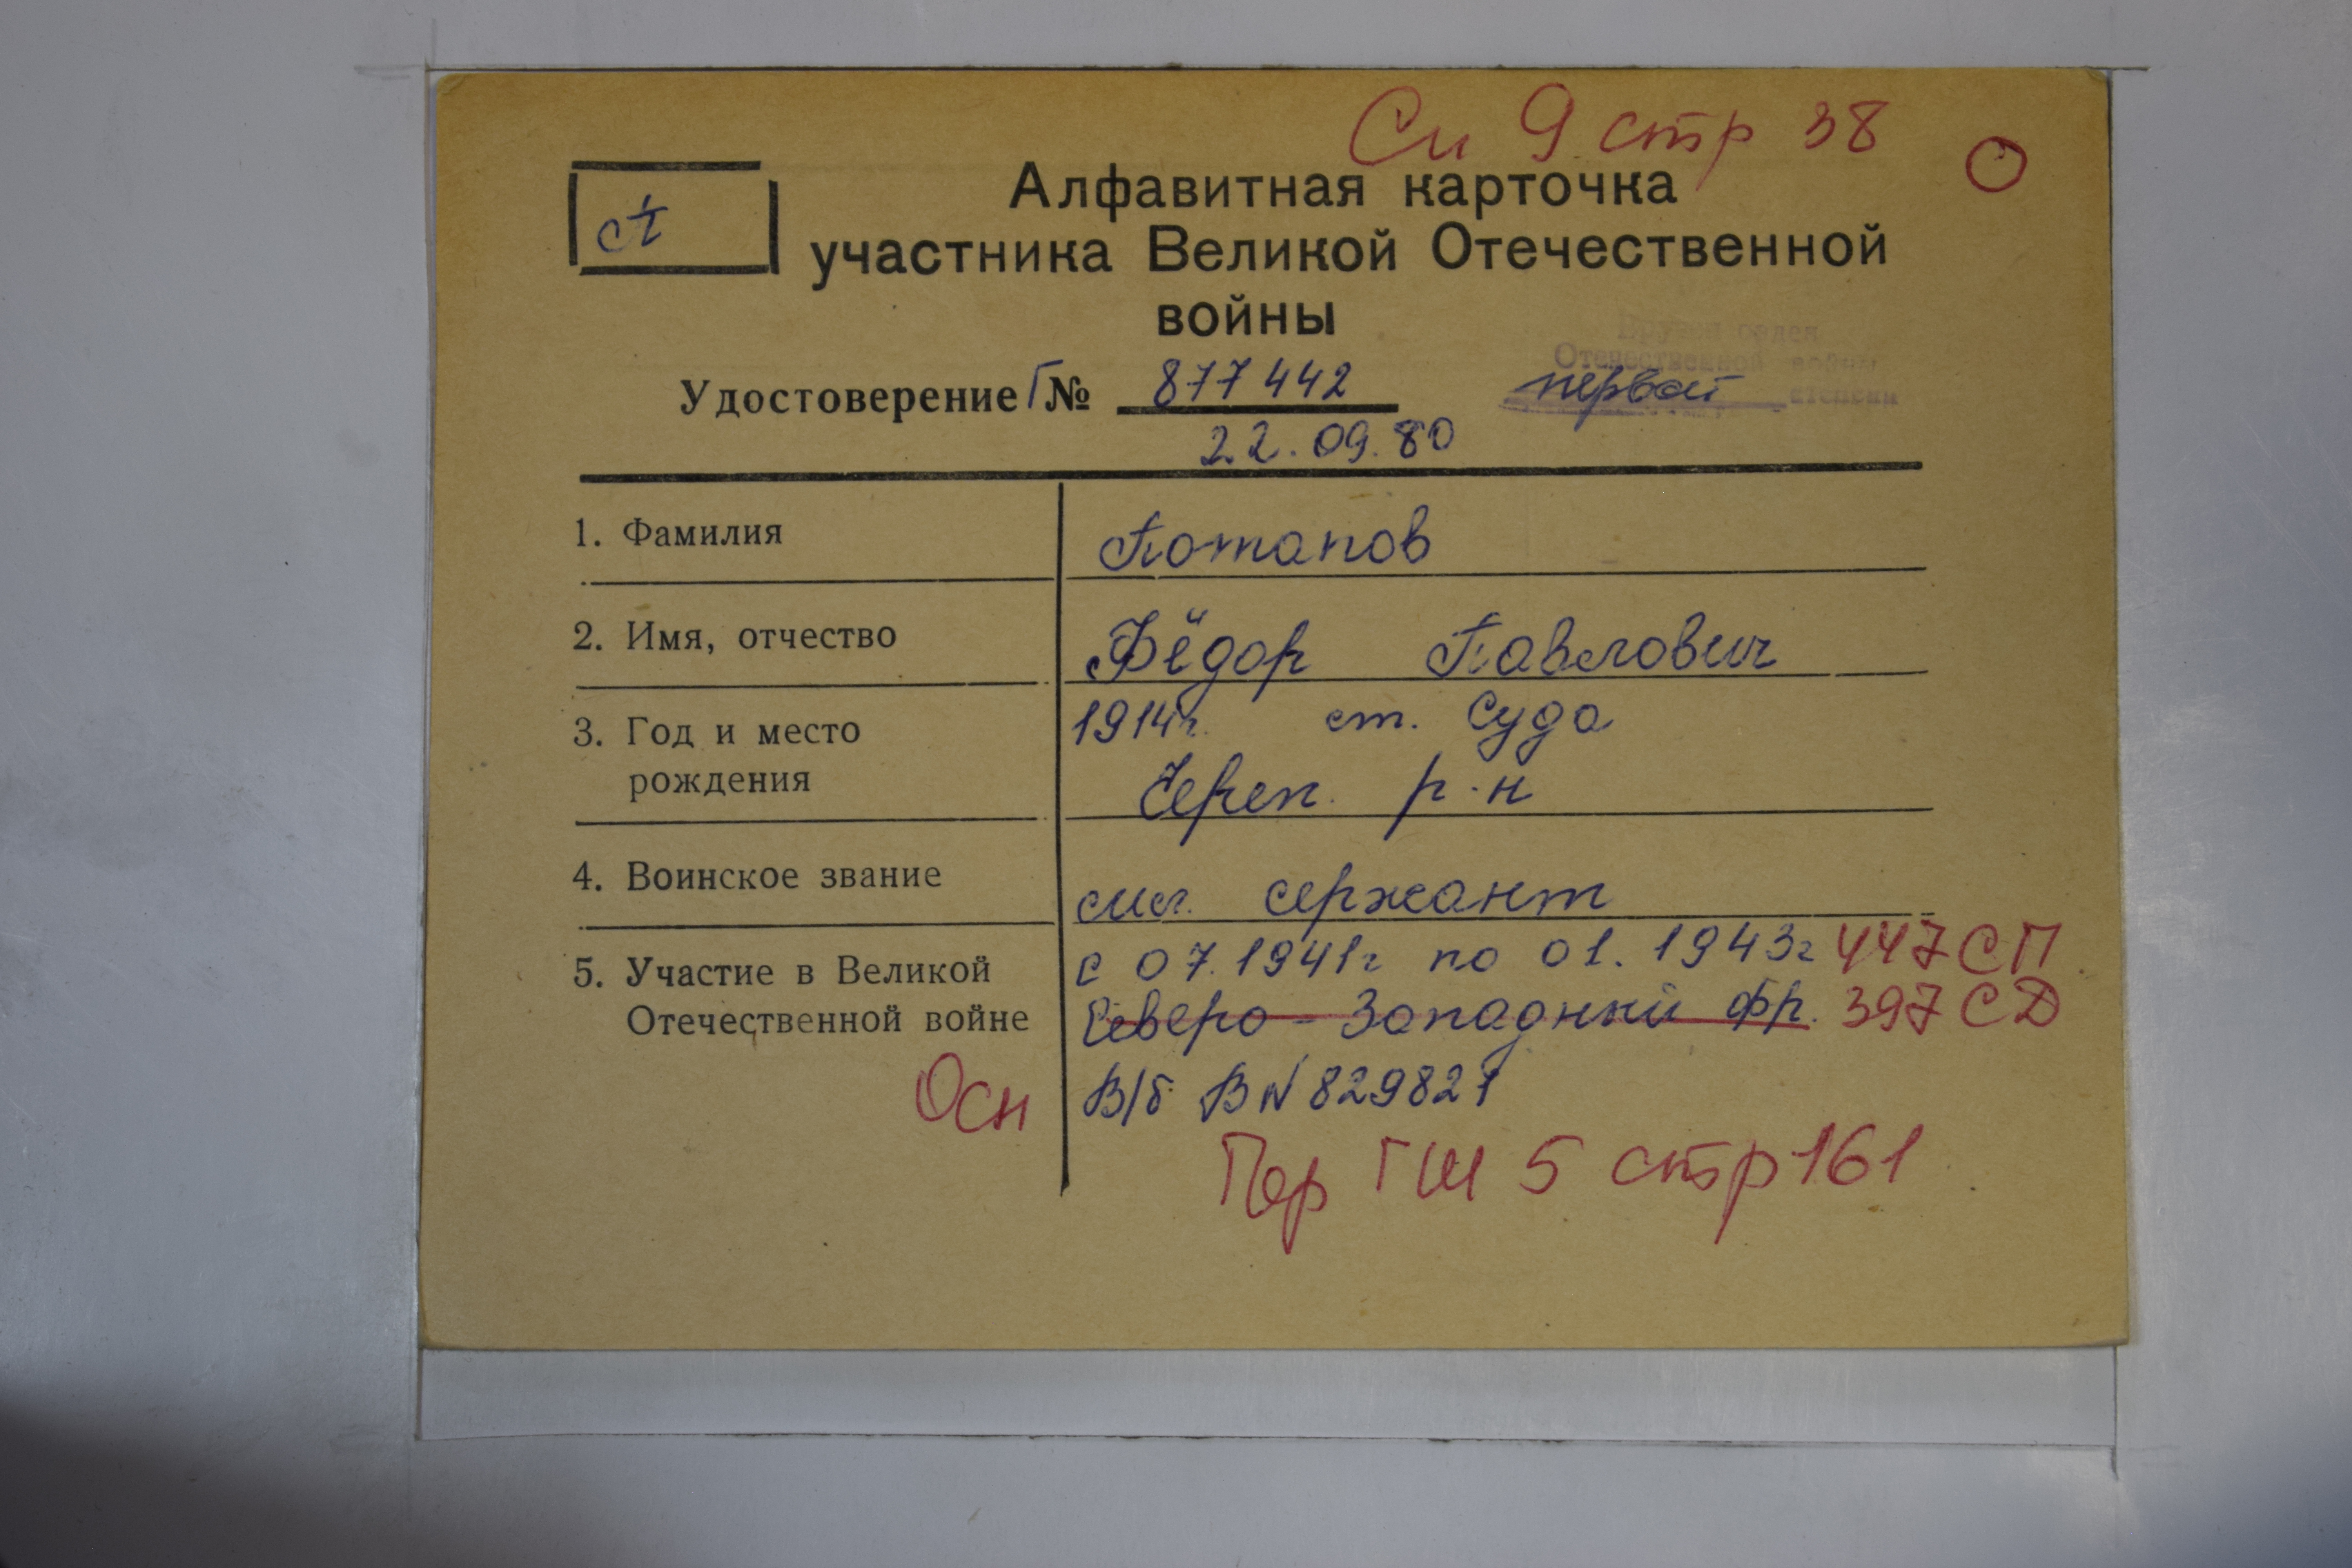 Сп 9 стр 38
Алфавитная карточка
участника Великой Отечественной
войны
Вручен орден
Отечественной войны
первой степени
Удостоверение Г № 877442
22.09.80
1. Фамилия Потапов
2. Имя, отчество Фёдор Павлович
3. Год и место рождения 1914г. ст. Суда
Череп. р-н
4. Воинское звание мл. сержант
5. Участие в Великой Отечественной войне с 07.1941г по 01.1943г 447 СП
Северо-Западный фр. 397 СД
Осн В/б В № 829821
Пер ГШ 5 стр 161